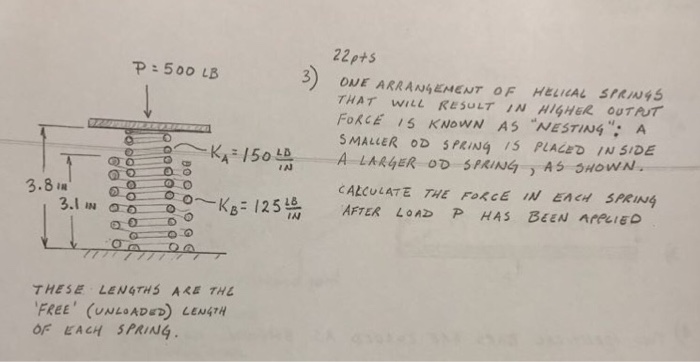 22pts
P = 500 LB
3) ONE ARRANGEMENT OF HELICAL SPRINGS
THAT WILL RESULT IN HIGHER OUTPUT
FORCE IS KNOWN AS "NESTING": A
SMALLER OD SPRING IS PLACED INSIDE
A LARGER OD SPRING, AS SHOWN.
KA = 150 LB/IN
3.8 IN
3.1 IN
KB = 125 LB/IN
CALCULATE THE FORCE IN EACH SPRING
AFTER LOAD P HAS BEEN APPLIED
THESE LENGTHS ARE THE
'FREE' (UNLOADED) LENGTH
OF EACH SPRING.